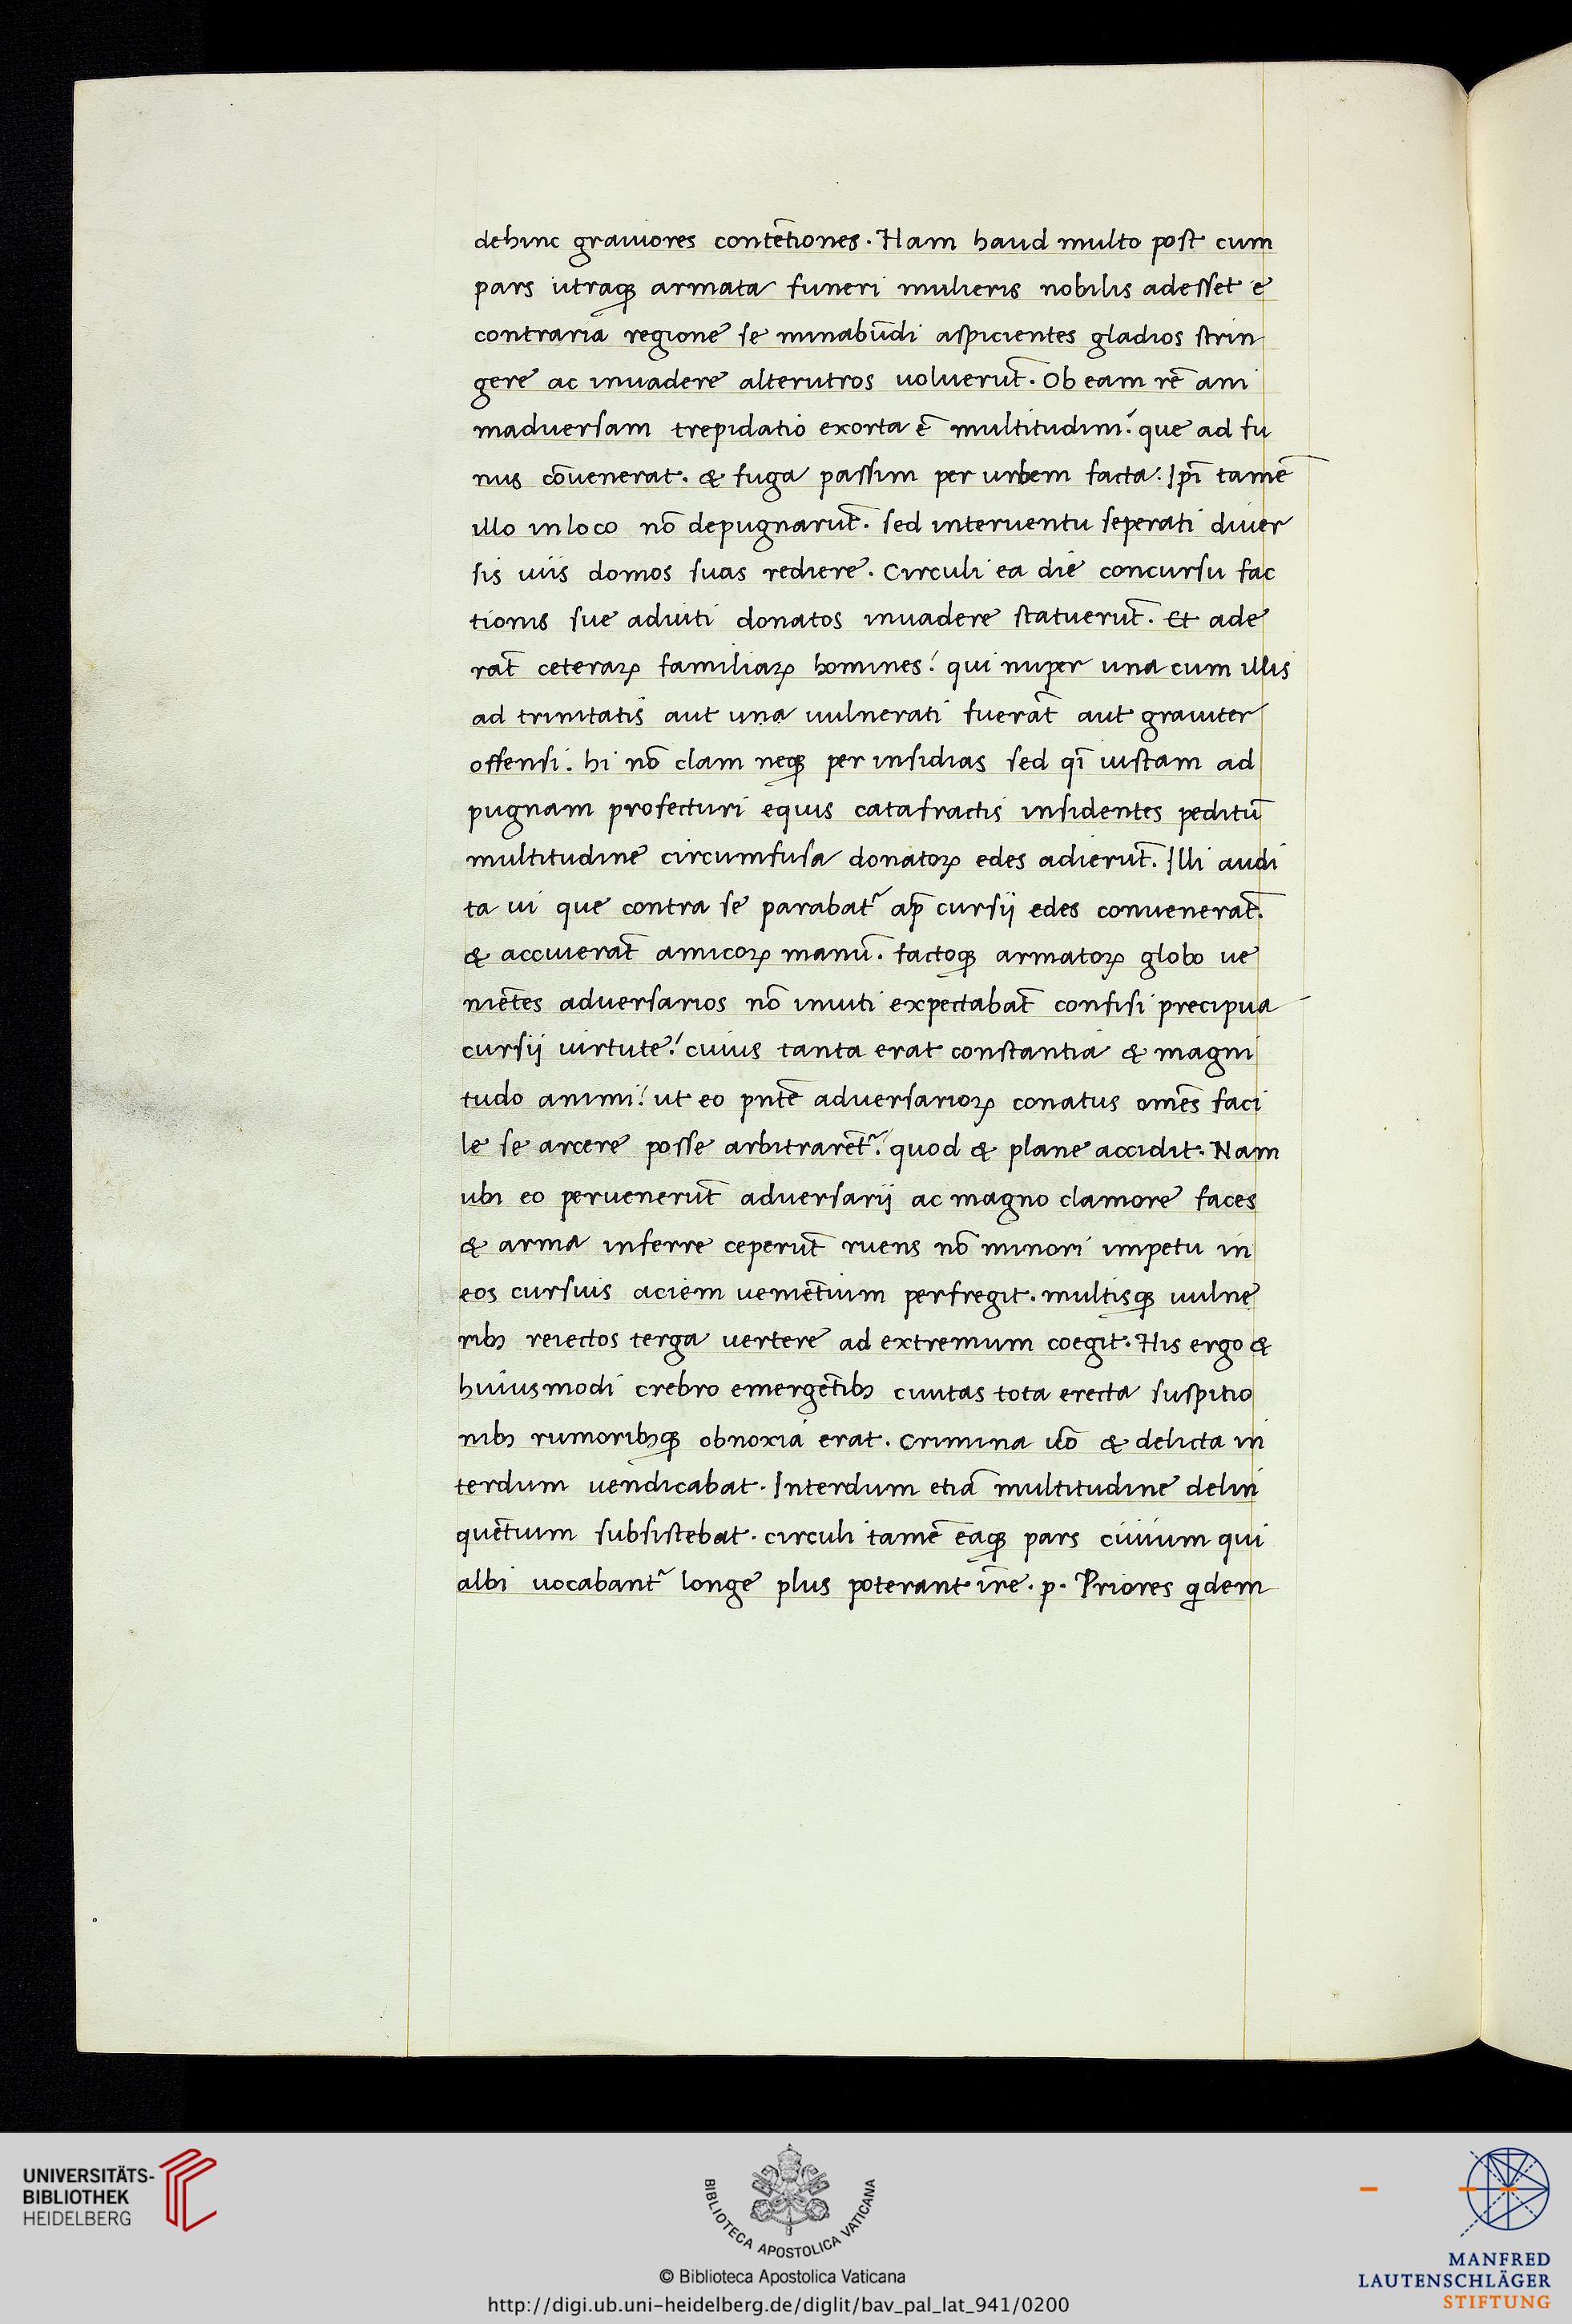 dehinc grauiores contētiones. Nam haud multo post cum
pars utraqꝫ armata funeri mulieris nobilis adesset e
contraria regione se minabūdi aspicientes gladios strin
gere ac inuadere alterutros uoluerūt. Ob eam rē ani
maduersam trepidatio exorta ē multitudini: que ad fu
nus cōuenerat. & fuga passim per urbem facta. Ipī tamē
illo in loco nō depugnarūt. sed interuentu seperati diuer
sis uiis domos suas rediere. Circuli ea die concursu fac
tionis sue adiuti donatos inuadere statuerūt. Et ade
rāt ceteraꝝ familiaꝝ homines: qui nuper una cum illis
ad trinitatis aut una uulnerati fuerāt aut grauiter
offensi. hi nō clam neqꝫ per insidias sed qī iustam ad
pugnam profecturi equis catafractis insidentes peditū
multitudine circumfusa donatoꝝ edes adierūt. Illi audi
ta ui que contra se parabatr̃ ap̄ cursij edes conuenerāt.
& acciuerāt amicoꝝ manū. factoqꝫ armatoꝝ globo ue
niētes aduersarios nō inuiti expectabāt confisi precipua
cursij uirtute: cuius tanta erat constantia & magni
tudo animi: ut eo pn̄te aduersarioꝝ conatus om̄es faci
le se arcere posse arbitrarēt: quod & plane accidit. Nam
ubi eo peruenerūt aduersarij ac magno clamore faces
& arma inferre ceperūt ruens nō minori impetu in
eos cursius aciem ueniētium perfregit. multisqꝫ uulne
ribꝫ reiectos terga uertere ad extremum coegit. His ergo &
huiusmodi crebro emergētibꝫ ciuitas tota erecta suspitio
nibꝫ rumoribꝫqꝫ obnoxia erat. Crimina uō & delicta in
terdum vendicabat. Interdum etiā multitudine delin
quētium subsistebat. circuli tamē eaqꝫ pars ciuium qui
albi uocabantr̃ longe plus poterant in re. p. Priores qͥdem
UNIVERSITÄTS-
BIBLIOTHEK
HEIDELBERG
BIBLIOTECA APOSTOLICA VATICANA
© Biblioteca Apostolica Vaticana
http://digi.ub.uni-heidelberg.de/diglit/bav_pal_lat_941/0200
MANFRED
LAUTENSCHLÄGER
STIFTUNG